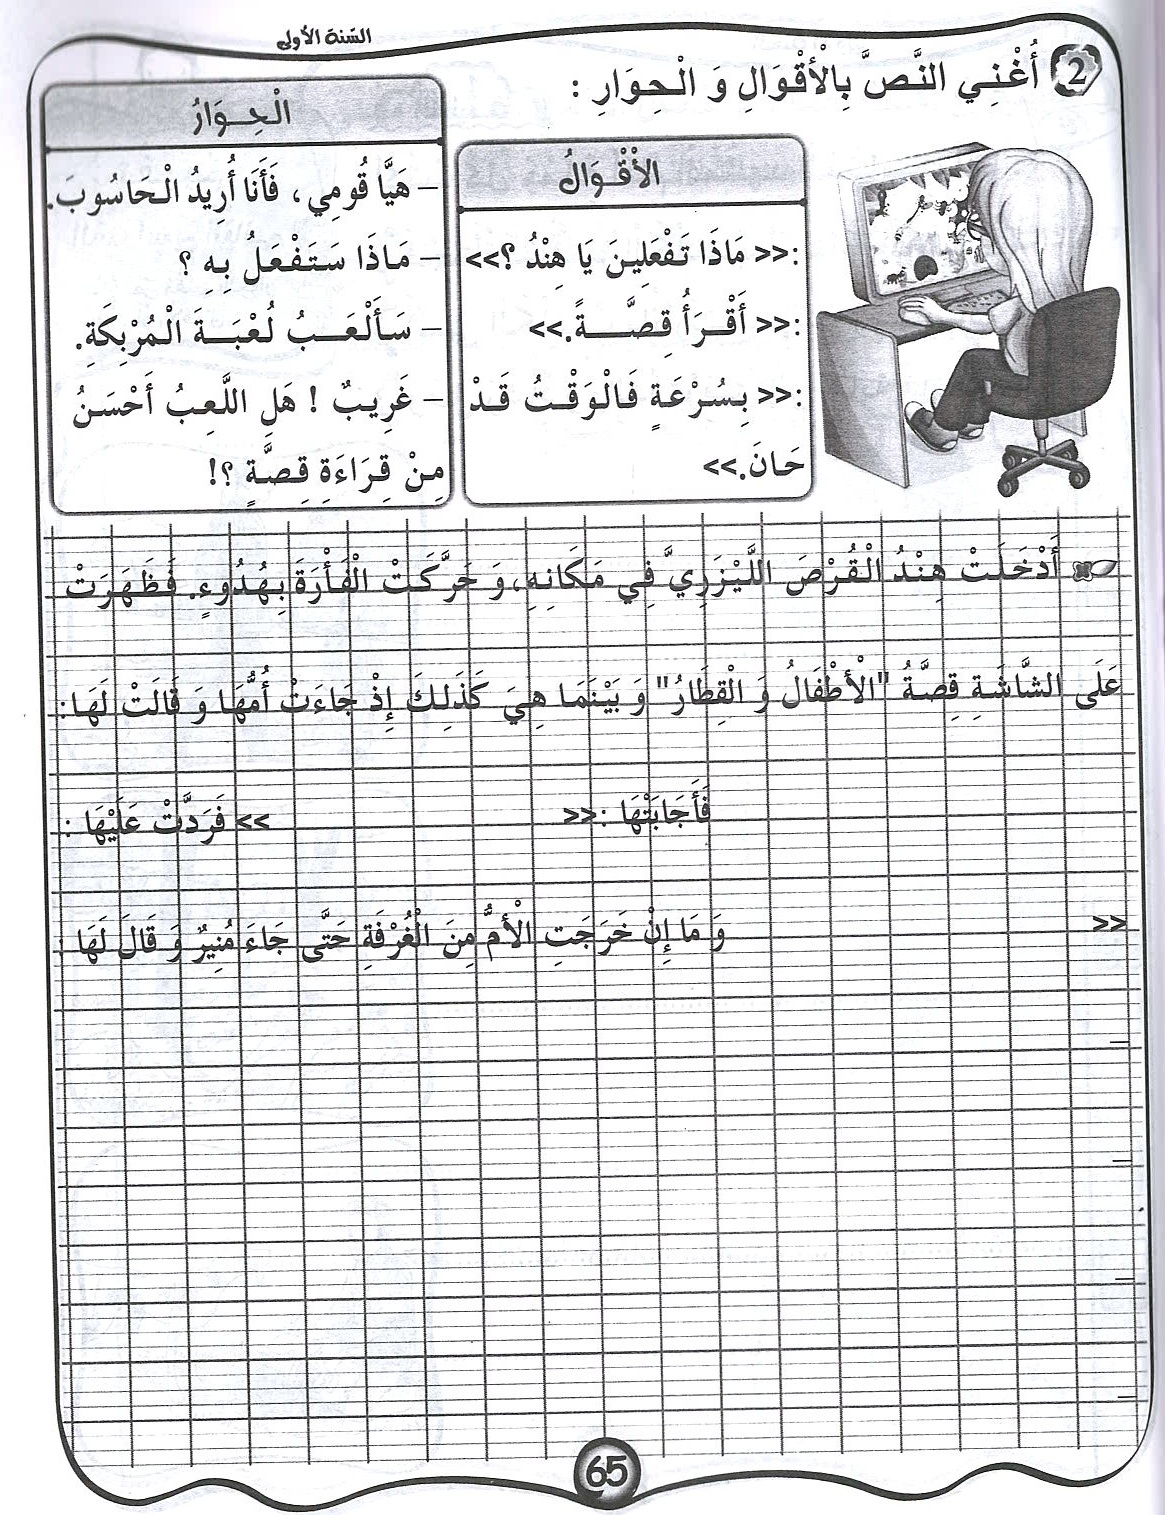 السّنة الأولى
2 أُغْنِي النَّصَّ بِالْأَقْوَالِ وَ الْحِوَارِ :
الْأَقْوَالُ
:<< مَاذَا تَفْعَلِينَ يَا هِنْدُ ؟>>
:<< أَقْرَأُ قِصَّةً.>>
:<< بِسُرْعَةٍ فَالْوَقْتُ قَدْ
حَانَ.>>
الْحِوَارُ
- هَيَّا قُومِي، فَأَنَا أُرِيدُ الْحَاسُوبَ.
- مَاذَا سَتَفْعَلُ بِهِ ؟
- سَأَلْعَبُ لُعْبَةَ الْمُرْبِكَةِ.
- غَرِيبٌ ! هَلِ اللَّعِبُ أَحْسَنُ
مِنْ قِرَاءَةِ قِصَّةٍ ؟!
أَدْخَلَتْ هِنْدُ الْقُرْصَ اللَّيْزَرِيَّ فِي مَكَانِهِ، وَ حَرَّكَتْ الْفَأْرَةَ بِهُدُوءٍ. فَظَهَرَتْ
عَلَى الشَّاشَةِ قِصَّةُ "الْأَطْفَالُ وَ الْقِطَارُ" وَ بَيْنَمَا هِيَ كَذَلِكَ إِذْ جَاءَتْ أُمُّهَا وَ قَالَتْ لَهَا:
فَأَجَابَتْهَا :<< >> فَرَدَّتْ عَلَيْهَا :
<< وَ مَا إِنْ خَرَجَتِ الْأُمُّ مِنَ الْغُرْفَةِ حَتَّى جَاءَ مُنِيرٌ وَ قَالَ لَهَا :
-
-
-
-
65